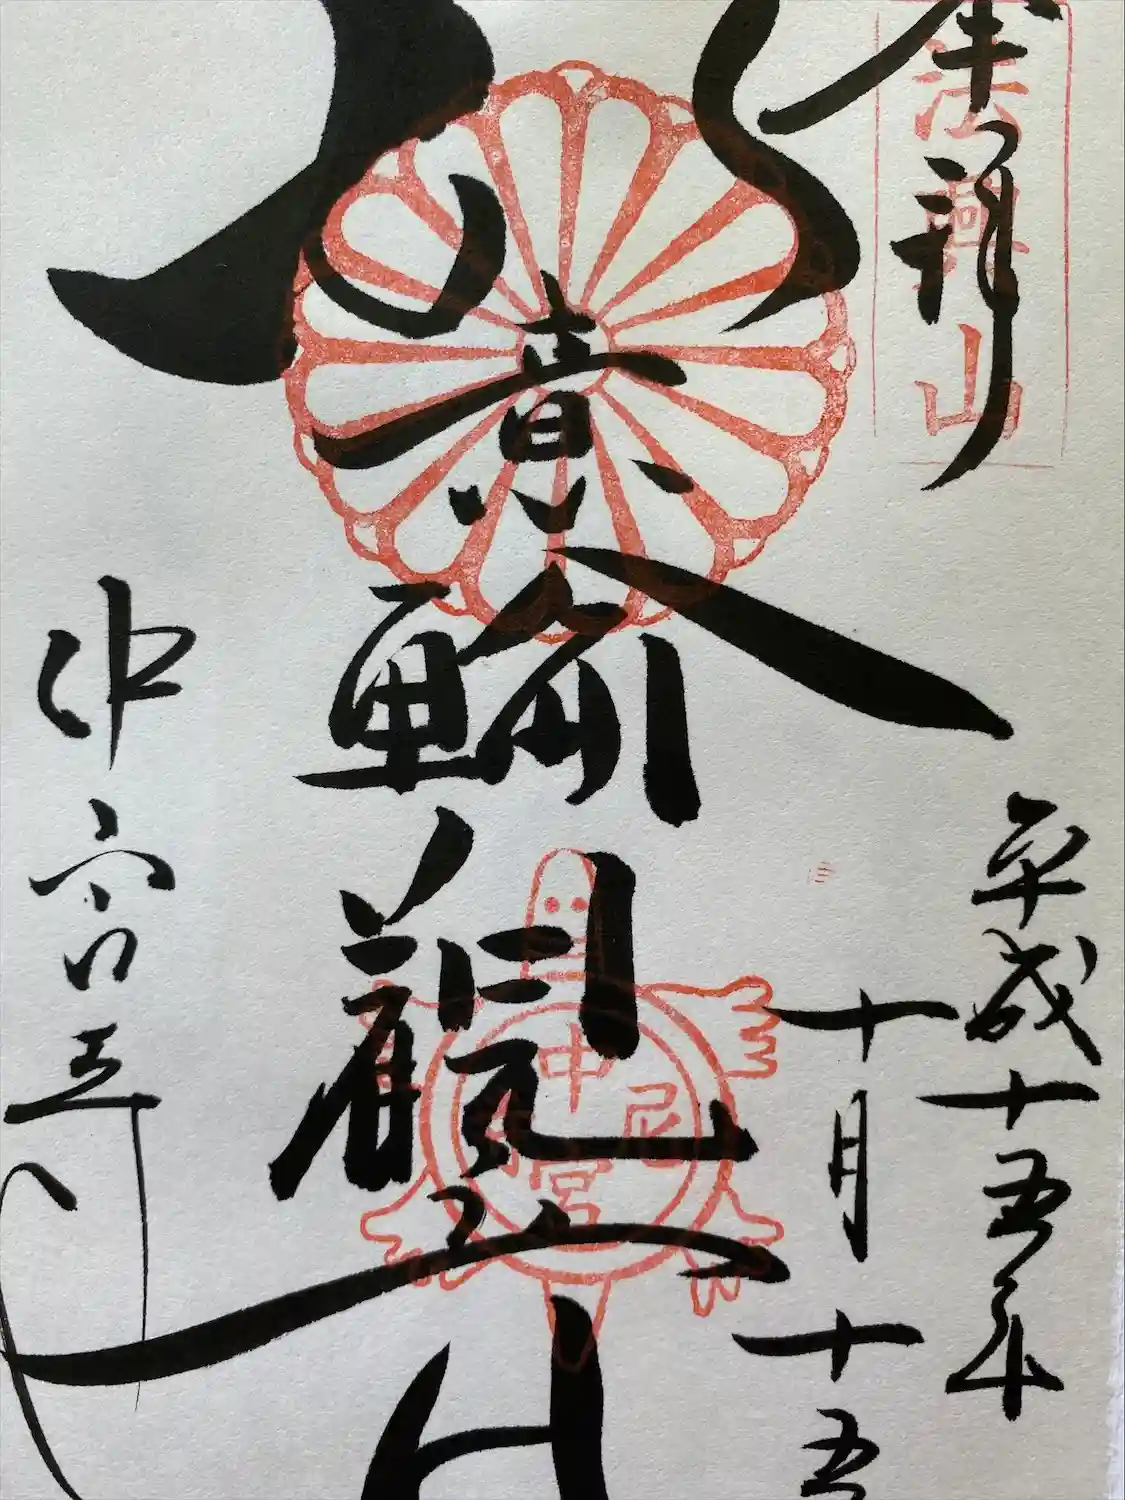 奉拝
法興山
平成十五年
十月十五
意輪観
中宮尼
中宮寺